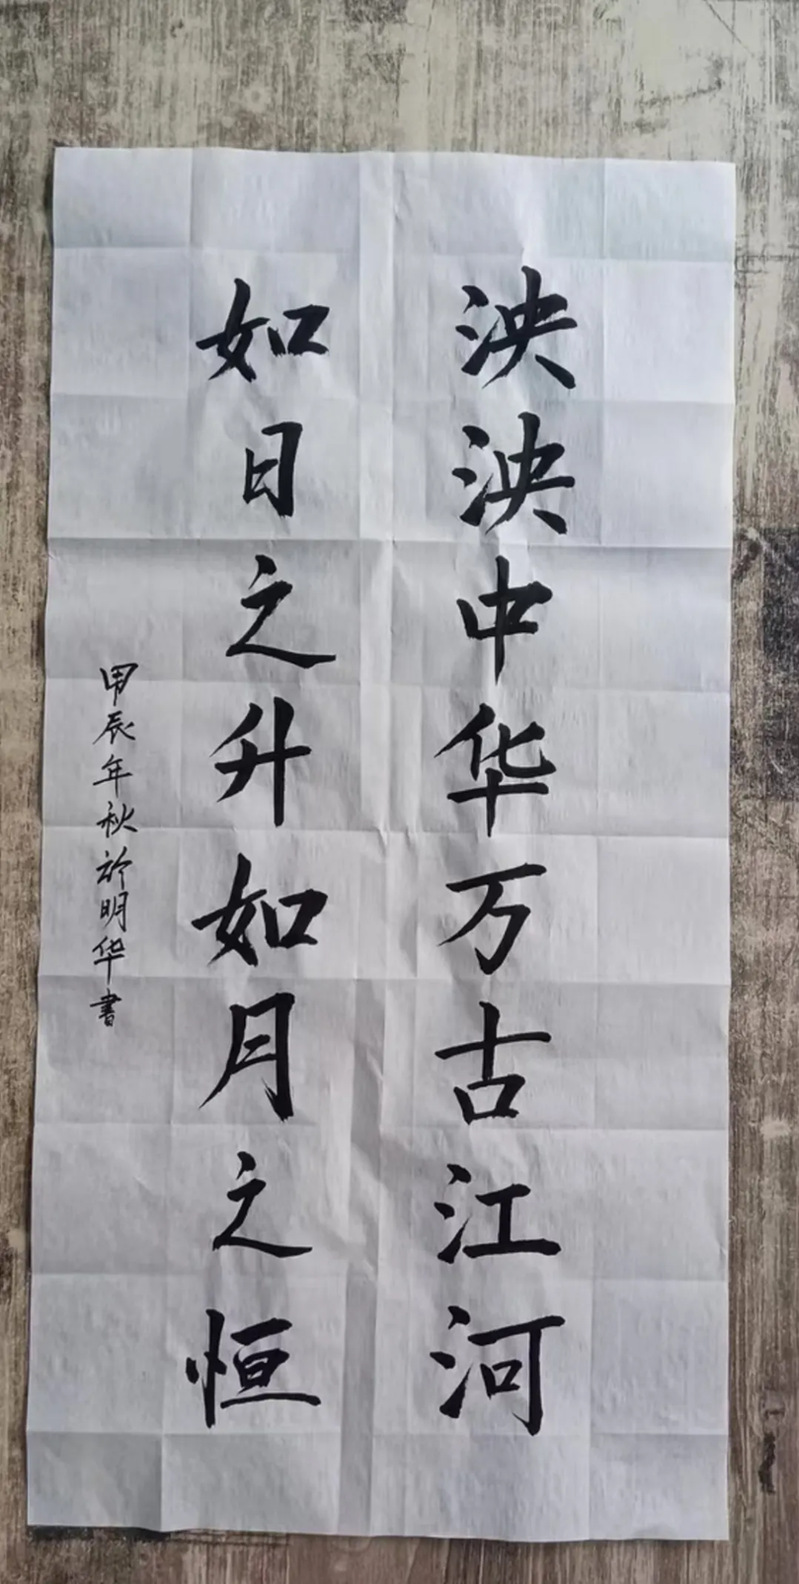 泱泱中华万古江河
如日之升如月之恒
甲辰年秋於明华书